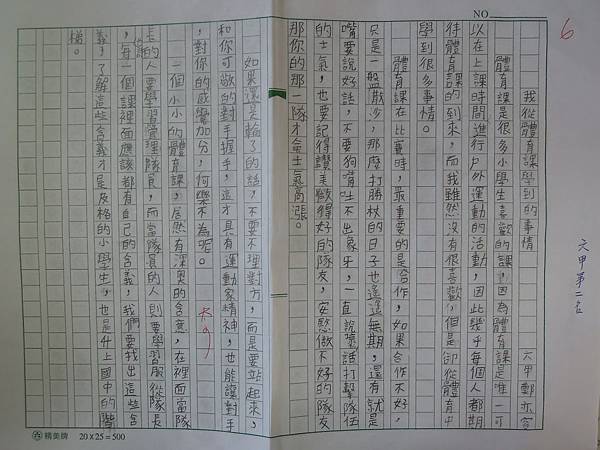 NO
6
六甲第二名
我從體育課學到的事情
六甲鄭亦容
體育課是很多小學生喜歡的課,因為體育課是唯一可
以在上課時間進行戶外運動的活動,因此幾乎每個人都期
待體育課的到來,而我雖然沒有很喜歡,但是卻從體育中
學到很多事情。
體育課在比賽時,最重要的是合作,如果合作不好,
只是一盤散沙,那麼打勝杖的日子也遙遙無期,還有就是
嘴要說好話,不要狗嘴吐不出象牙,一直說壞話打擊隊伍
的士氣,也要記得讚美做得好的隊友,安慰做不好的隊友
那你的那一隊才會士氣高漲。
如果還是輸了的話,不要不理對方,而是要站起來,
和你可敬的對手握手,這才具有運動家精神,也能讓對手
,對你的感覺加分,何樂不為呢。
一個小小的體育課,居然有深奧的含意,在裡面當隊
長的人要學習管理隊員,而當隊員的人則要學習服從隊長
,每一個課裡面應該都有自己的含義,我們要找出這些含
義,了解這些含義才是及格的小學生,也是升上國中的階
梯。
精美牌 20×25=500